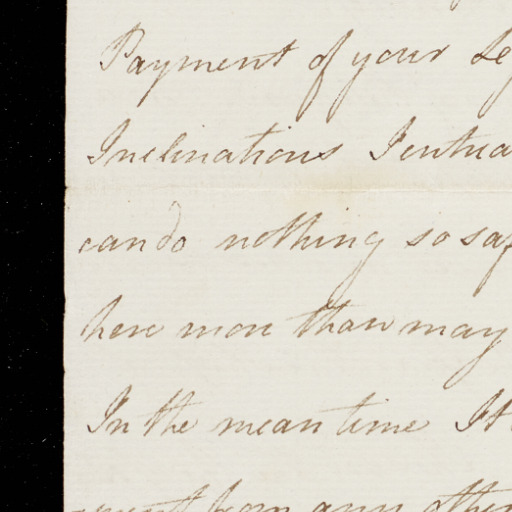 Payment of your Le
Inclinations I entrea
can do nothing so saf
here more than may
In the mean time It
from any other